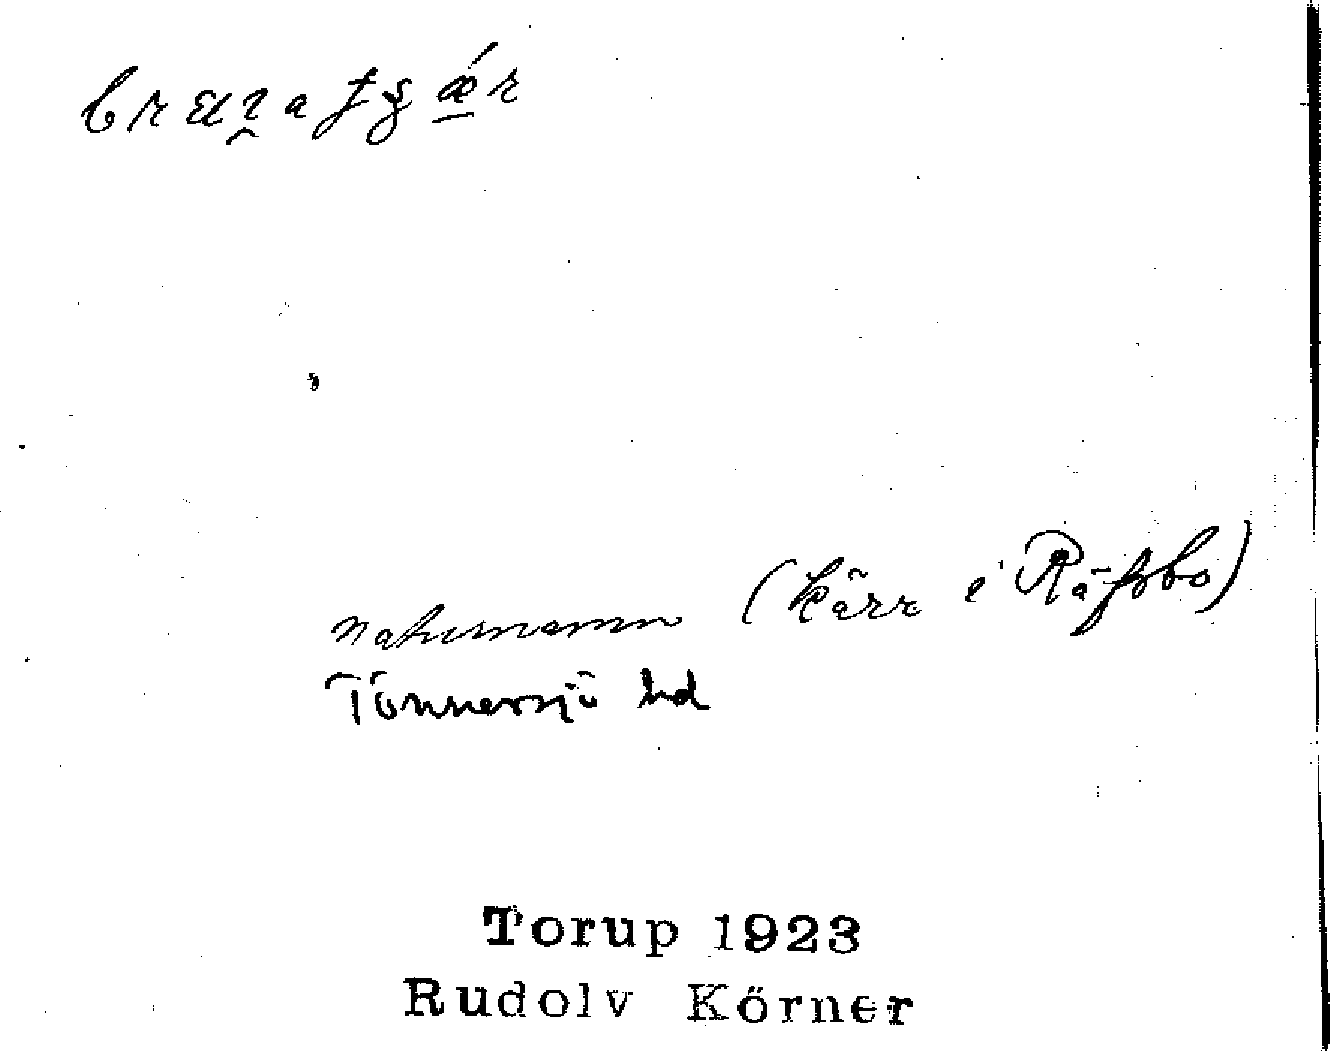 naturnamn (kärr i Räfsbo)
Tönnersjö hd
Torup 1923
Rudolv Körner